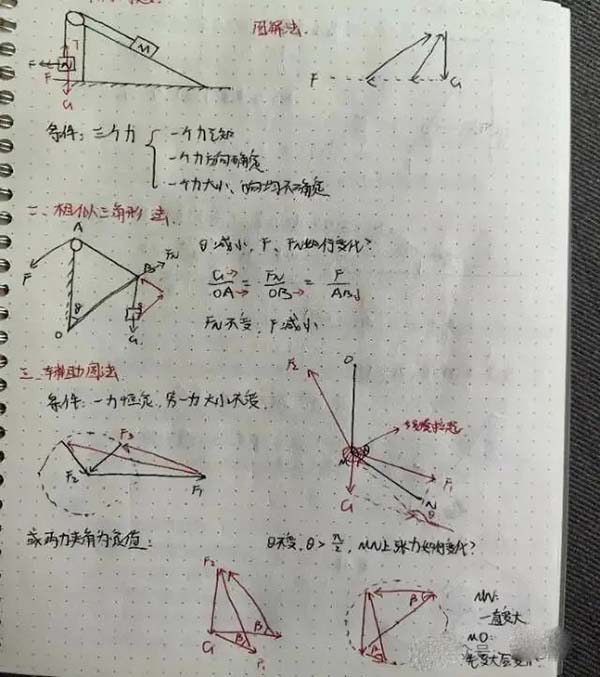 图解法
T
M
F
F
G
F
G
条件：三个力
一个力已知
一个力方向确定
一个力大小、方向均不确定
二、相似三角形法
A
θ减小，F、FN如何变化？
F
B
FN
θ
O
G
G/OA = FN/OB = F/AB↓
FN不变，F减小
三、辅助圆法
条件：一力恒定，另一力大小不变，
F3
F2
F1
F2
O
M
缓慢拉起
F1
G
N
θ
或两力夹角为定值：
θ不变，θ > π/2，MN上张力如何变化？
F2
G
β
β
F1
β
β
MN:
一直变大
MO:
先变大后变小